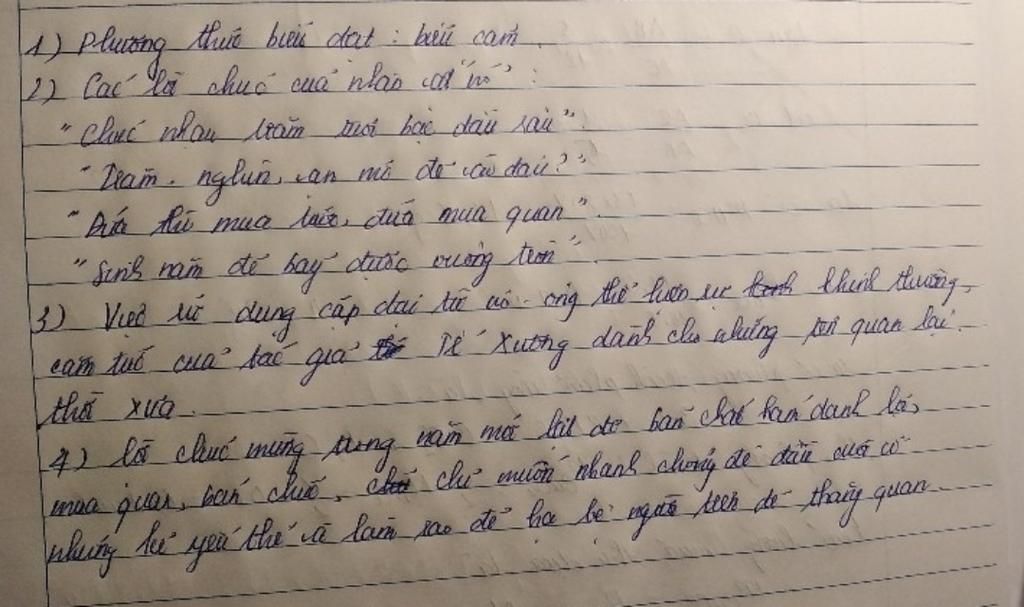 1) Phương thức biểu đạt : biểu cảm.
2) Các lời chúc của nhân vật "nó" :
"Chúc nhau trăm tuổi bạc đầu râu".
"Trăm, nghìn, vạn mớ để vào đâu?"
"Đứa thì mua tước, đứa mua quan".
"Sinh năm đẻ bảy được vuông tròn".
3) Việc sử dụng cặp đại từ nó - ông thể hiện sự khinh thường,
căm tức của tác giả Tế Xương dành cho những tên quan lại
thời xưa.
4) Lời chúc mừng trong năm mới lột tả bản chất ham danh lợi,
mua quan, bán chức, chỉ muốn nhanh chóng đè đầu cưỡi cổ
những kẻ yếu thế và làm sao để hạ bệ người trên để thăng quan.